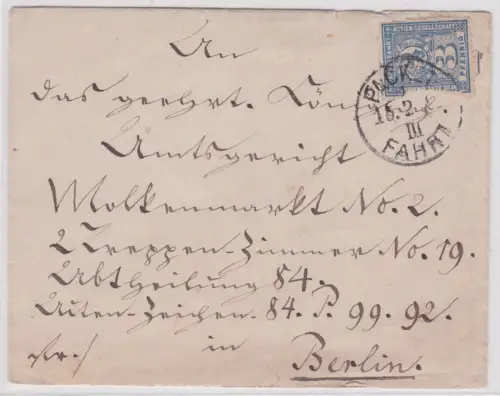 An
das geehrt. König
Amtsgericht
Molkenmarkt No. 2.
2 Treppen-Zimmer No. 19.
Abtheilung 84.
Akten-Zeichen. 84. P. 99. 92.
fr./ in Berlin.
PFENNIG
PACK
15.2
III
FAHRT